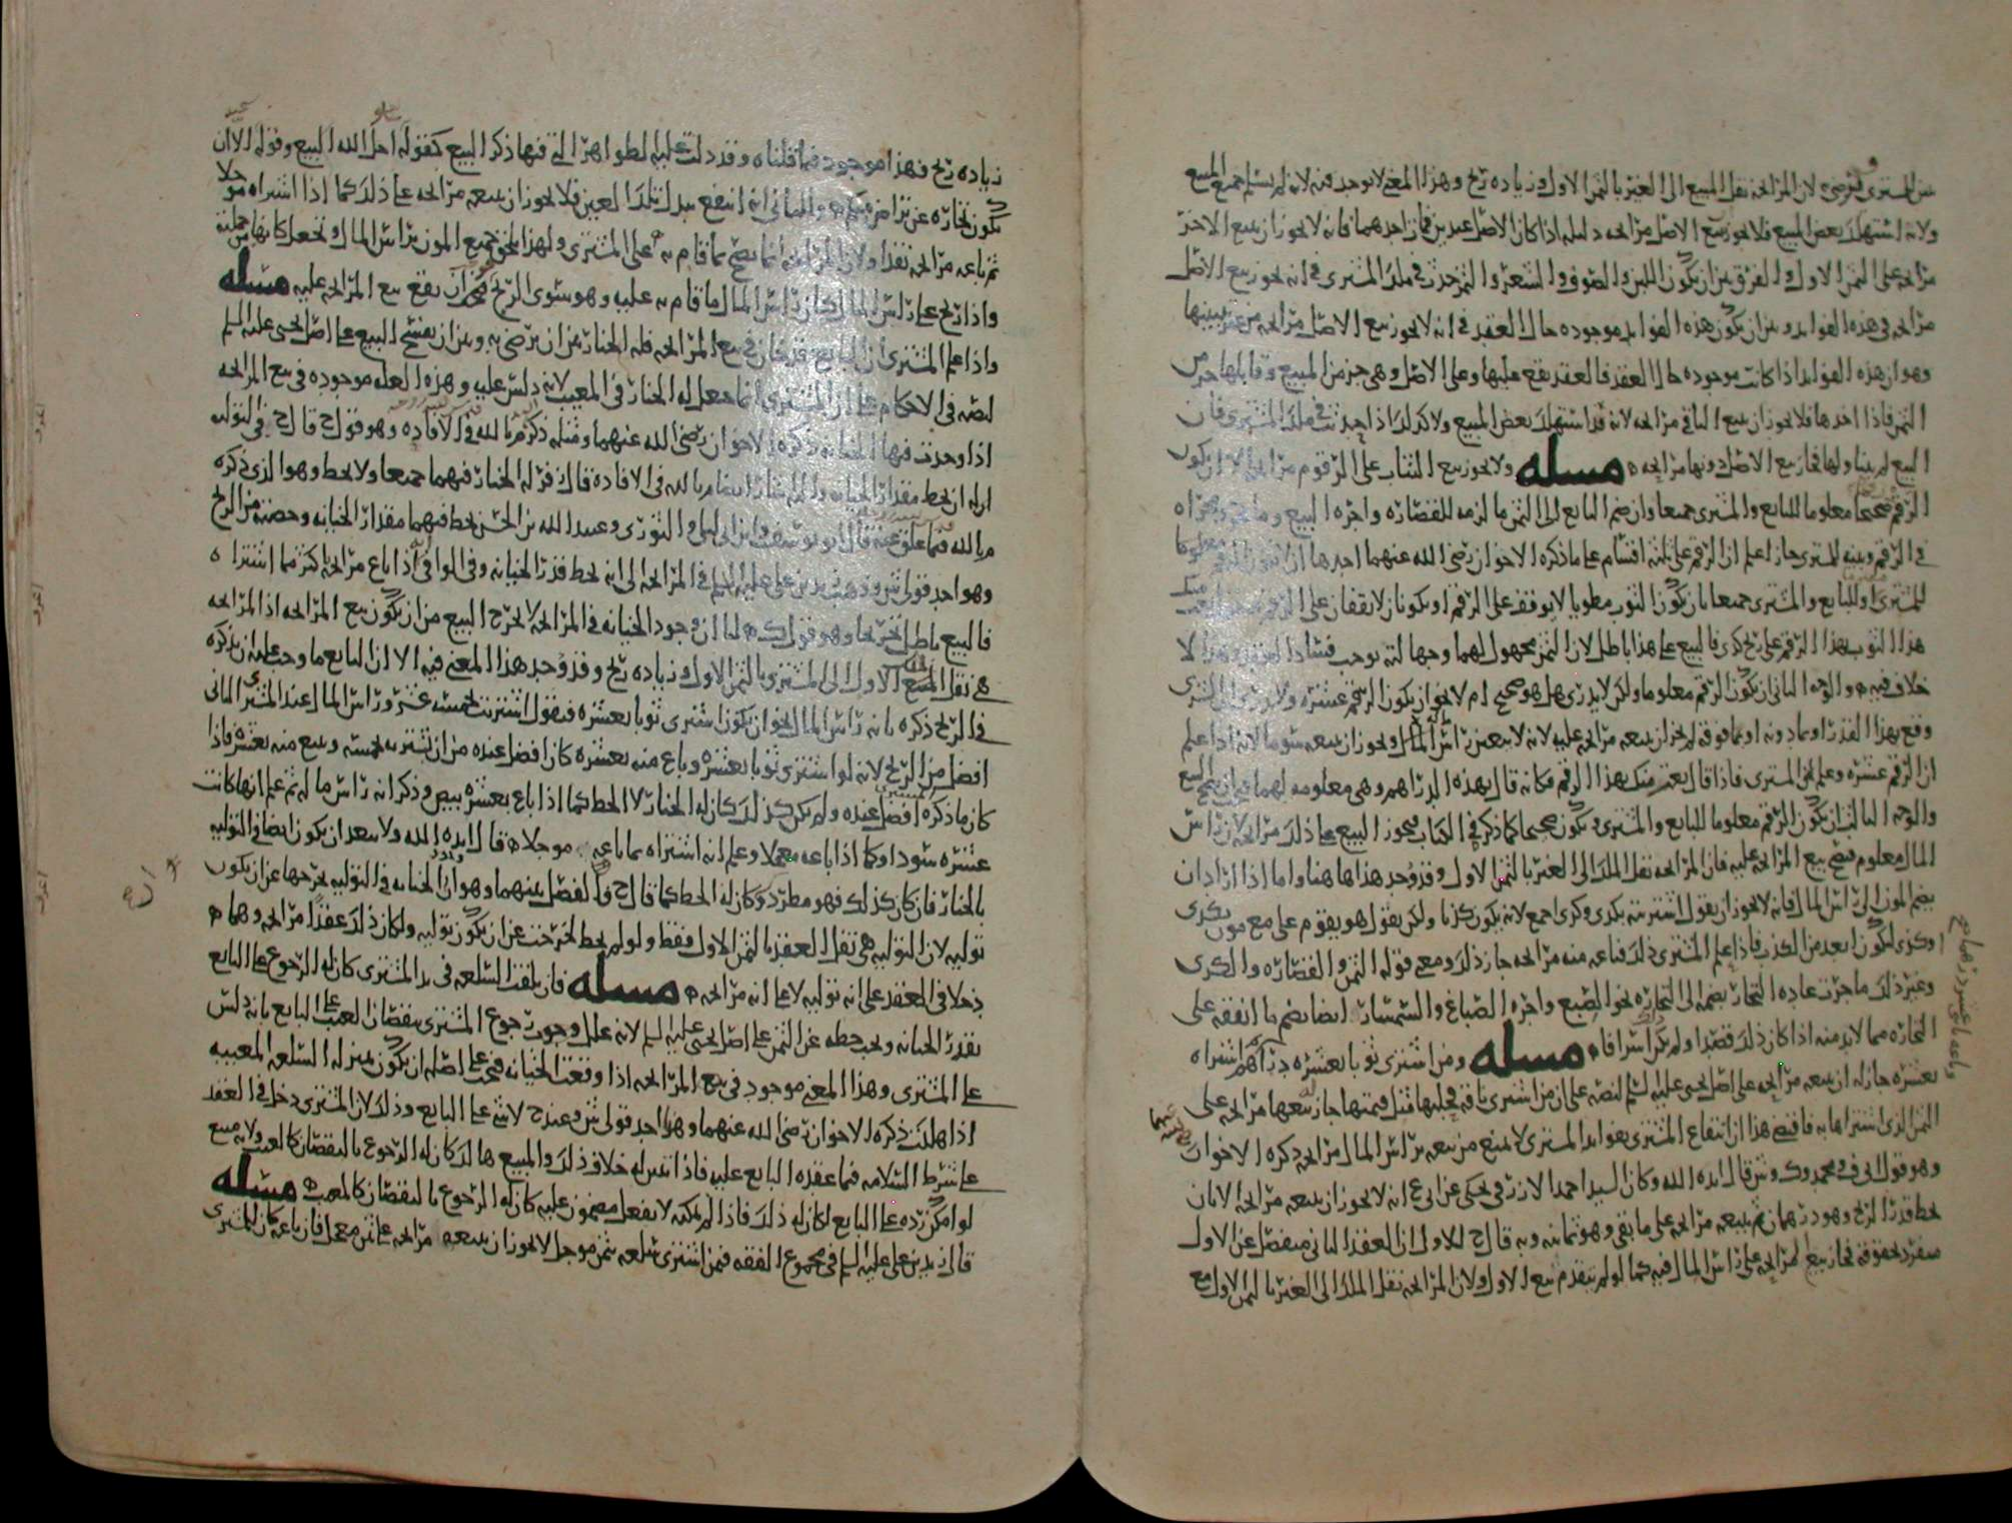 من المشتري لان المرابحه نقل المبيع الى الغير بالثمن الاول وزياده ربح وهذا المعنى لا يوجد فيه لانه لم يسلم جميع المبيع
ولانه استهلك بعض المبيع فلا يجوز بيع الاصل مرابحه دليله اذا كان الاصل عبدين فمات احدهما فانه لا يجوز ان يبيع الاخر
مرابحه على الثمن الاول والفرق بين ان يكون اللبن والصوف والشعر والثمر حدث في ملك المشتري في انه يجوز بيع الاصل
مرابحه في هذه الفوايد وبين ان يكون هذه الفوايد موجوده حال العقد في انه لا يجوز بيع الاصل مرابحه من غير تبيينها
وهو ان هذه الفوايد اذا كانت موجوده حال العقد فالعقد يقع عليها وعلى الاصل وهي جزء من المبيع وقابلها جزء من
الثمن فاذا اخذها فلا يجوز ان يبيع الباقي مرابحه لانه قد استهلك بعض المبيع ولا كذلك اذا حدثت في ملك المشتري فان
البيع لم يتناولها فجاز بيع الاصل دونها مرابحه مسله ولا يجوز بيع الثياب على الرقوم مرابحه الا ان يكون
الرقم صحيحا معلوما للبايع والمشتري جميعا وان ضم البايع الى الثمن ما لزمه للقصاره واجره البيع وما جرى مجراه
في الرقم وبينه للمشتري جاز اعلم ان الرقم على ثلثه اقسام على ما ذكره الاخوان رضي الله عنهما احدها ان
للمشتري او للبايع والمشتري جميعا بان يكون الثوب مطويا لا يوقف على الرقم او يكونان لا يقفان على الرقم
هذا الثوب بهذا الرقم على ربح كذى فالبيع على هذا باطل لان الثمن مجهول لهما وجهالته توجب فساد البيع وهذا لا
خلاف فيه والوجه الثاني ان يكون الرقم معلوما ولكن لا يدري هل هو صحيح ام لا نحو ان يكون الرقم عشره ولا يدري ان الشرى
وقع بهذا القدر او بما دونه او بما فوقه لم يجز ان يبيعه مرابحه عليه لانه لا يتعين راس المال ويجوز ان يبيعه سوما لانه اذا علم
ان الرقم عشره وعلم به المشتري فاذا قال بعته منك بهذا الرقم فكانه قال بهذه الدراهم وهي معلومه لهما فيصح البيع
والوجه الثالث ان يكون الرقم معلوما للبايع والمشتري ويكون صحيحا كما ذكر في الكتاب فيجوز البيع على ذلك مرابحه لان راس
المال معلوم فيصح بيع المرابحه عليه فان المرابحه نقل الملك الى الغير بالثمن الاول وقد وجد هذا هاهنا واما اذا اراد ان
يضم المون الى راس المال فانه لا يجوز ان يقول اشتريته بكذى وكذى اجمع لانه يكون كذبا ولكن يقول هو يقوم علي مع مونه بكذى
وكذى ليكون ابعد من الكذب فاذا علم المشتري ذلك فباعه منه مرابحه جاز ذلك ومعنى قوله الثمن والقصاره والكرى
وغير ذلك ما جرت عاده التجار بضمه الى التجاره نحو الصبغ واجره الصباغ والسمسار ايضا يضم ما انفقه على
التجاره مما لا بد منه اذا كان ذلك قصدا ولم يكن اسرافا مسله ومن اشترى ثوبا بعشره دراهم اشتراه
بعشره جاز له ان يبيعه مرابحه على اصل يحيى عليه السلم لنصه على ان من اشترى ناقه فحلبها قبل قبضها جاز بيعها مرابحه على
الثمن الذي اشتراها به فاقتضى هذا ان انتفاع المشتري بفوايد المشترى لا يمنع من بيعه براس المال مرابحه ذكره الاخوان
وهو قول ابي ف ومحمد وك وش قال ايده الله وكان السيد احمد الازرقي يحكي عن ابي ع انه لا يجوز ان يبيعه مرابحه الا بان
يحط قدر الربح وهو درهمان ثم يبيعه مرابحه على ما بقي وهو ثمانيه وبه قال ح للاول ان العقد الثاني منفصل عن الاول
منفرد بحقوقه فجاز بيع المرابحه على راس المال فيه كما لو لم يتقدم بيع الاول ولان المرابحه نقل الملك الى الغير بالثمن الاول مع
زياده ربح فهذا موجود فيما قلناه وقد دلت عليه الظواهر التي فيها ذكر البيع كقوله احل الله البيع وقوله الا ان
تكون تجاره عن تراض منكم والثاني انه انتفع ببدل تلك العين فلا يجوز ان يبيعه مرابحه على ذلك كما اذا اشتراه موجلا
ثم باعه مرابحه نقدا ولان المرابحه انما تصح بما قام به على المشتري ولهذا يلحق جميع المون براس المال وتجعل كانها من جملته
واذا ربح على راس المال كان راس المال ما قام به عليه وهو سوى الربح فيجب ان يقع بيع المرابحه عليه مسله
واذا علم المشتري ان البايع قد خان في بيع المرابحه فله الخيار بين ان يرضى به وبين ان يفسخ البيع على اصل يحيى عليه السلم
لنصه في الاحكام على ان المشتري انما جعل له الخيار في المعيب لانه دلس عليه وهذه العله موجوده في بيع المرابحه
اذا وجدت فيها الخيانه ذكره الاخوان رضي الله عنهما ومثله ذكر م بالله في الافاده وهو قول ح قال ح في التوليه
له ان يحط مقدار الخيانه واليه اشار ايضا م بالله في الافاده قال فر له الخيار فيهما جميعا ولا يحط وهو الذي ذكره
م بالله فيما علق عنه قال ابو يوسف وابن ابي ليلى والثوري وعبيد الله بن الحسن يحط فيهما مقدار الخيانه وحصته من الربح
وهو احد قولي ش وذهب زيد بن علي عليه السلم في المرابحه الى انه يحط قدر الخيانه وفي الوافي اذا باع مرابحه باكثر مما اشتراه
فالبيع باطل وهو قول ك لنا ان وجود الخيانه في المرابحه لا يخرج البيع من ان يكون بيع المرابحه اذ المرابحه
هي نقل المبيع الاول الى المشتري بالثمن الاول وزياده ربح وقد وجد هذا المعنى فيه الا ان للبايع ما وجب عليه ان يذكره
في الربح ذكره بانه راس المال نحو ان يكون اشترى ثوبا بعشره فيقول اشتريت بخمسه عشر وراس المال عند المشتري الثاني
افضل من الربح لانه لو اشترى ثوبا بعشره وباع منه بعشره كان افضل عنده من ان يشتريه بخمسه ويبيع منه بعشره فاذا
كان ما ذكره افضل عنده ولم يكن كذلك كان له الخيار لا الحط كما اذا باع بعشره بيض وذكر انه راس ماله ثم علم انها كانت
عشره سودا وكما اذا باعه معجلا وعلم انه اشتراه بما باعه موجلا قال ايده الله ولا يبعد ان يكون ايضا في التوليه
بالخيار فان كان كذلك فهو مطرد وكان له الحط كما قال ح فالفصل بينهما وهو ان الخيانه في التوليه تخرجها عن ان يكون
توليه لان التوليه هي نقل العقد بالثمن الاول فقط ولو لم يحط لخرجت عن ان يكون توليه ولكان ذلك عقدا مرابحه وهما
دخلا في العقد على انه توليه لا على انه مرابحه مسله فان تلفت السلعه في يد المشتري كان له الرجوع على البايع
بقدر الخيانه ويجب حطه عن الثمن على اصل يحيى عليه السلم لانه علل وجوب رجوع المشتري بنقصان العيب على البايع بانه دلس
على المشتري وهذا المعنى موجود في بيع المرابحه اذا وقعت الخيانه فيجب على اصله ان يكون بمنزله السلعه المعيبه
اذا هلكت ذكره الاخوان رضي الله عنهما وهو احد قولي ش وعند ح لا شي على البايع وذلك لان المشتري دخل في العقد
على شرط السلامه فيما عقده البايع عليه فاذا تبين له خلاف ذلك والمبيع هالك كان له الرجوع بالنقصان كالعيب ولانه مبيع
لو امكن رده على البايع لكان له ذلك فاذا لم يمكنه لا بفعل مضمون عليه كان له الرجوع بالنقصان كالمعيب مسله
قال زيد بن علي عليه السلم في مجموع الفقه فيمن اشترى سلعه بثمن موجل لا يجوز ان يبيعه مرابحه على ثمن معجل فان باعه كان للمشتري